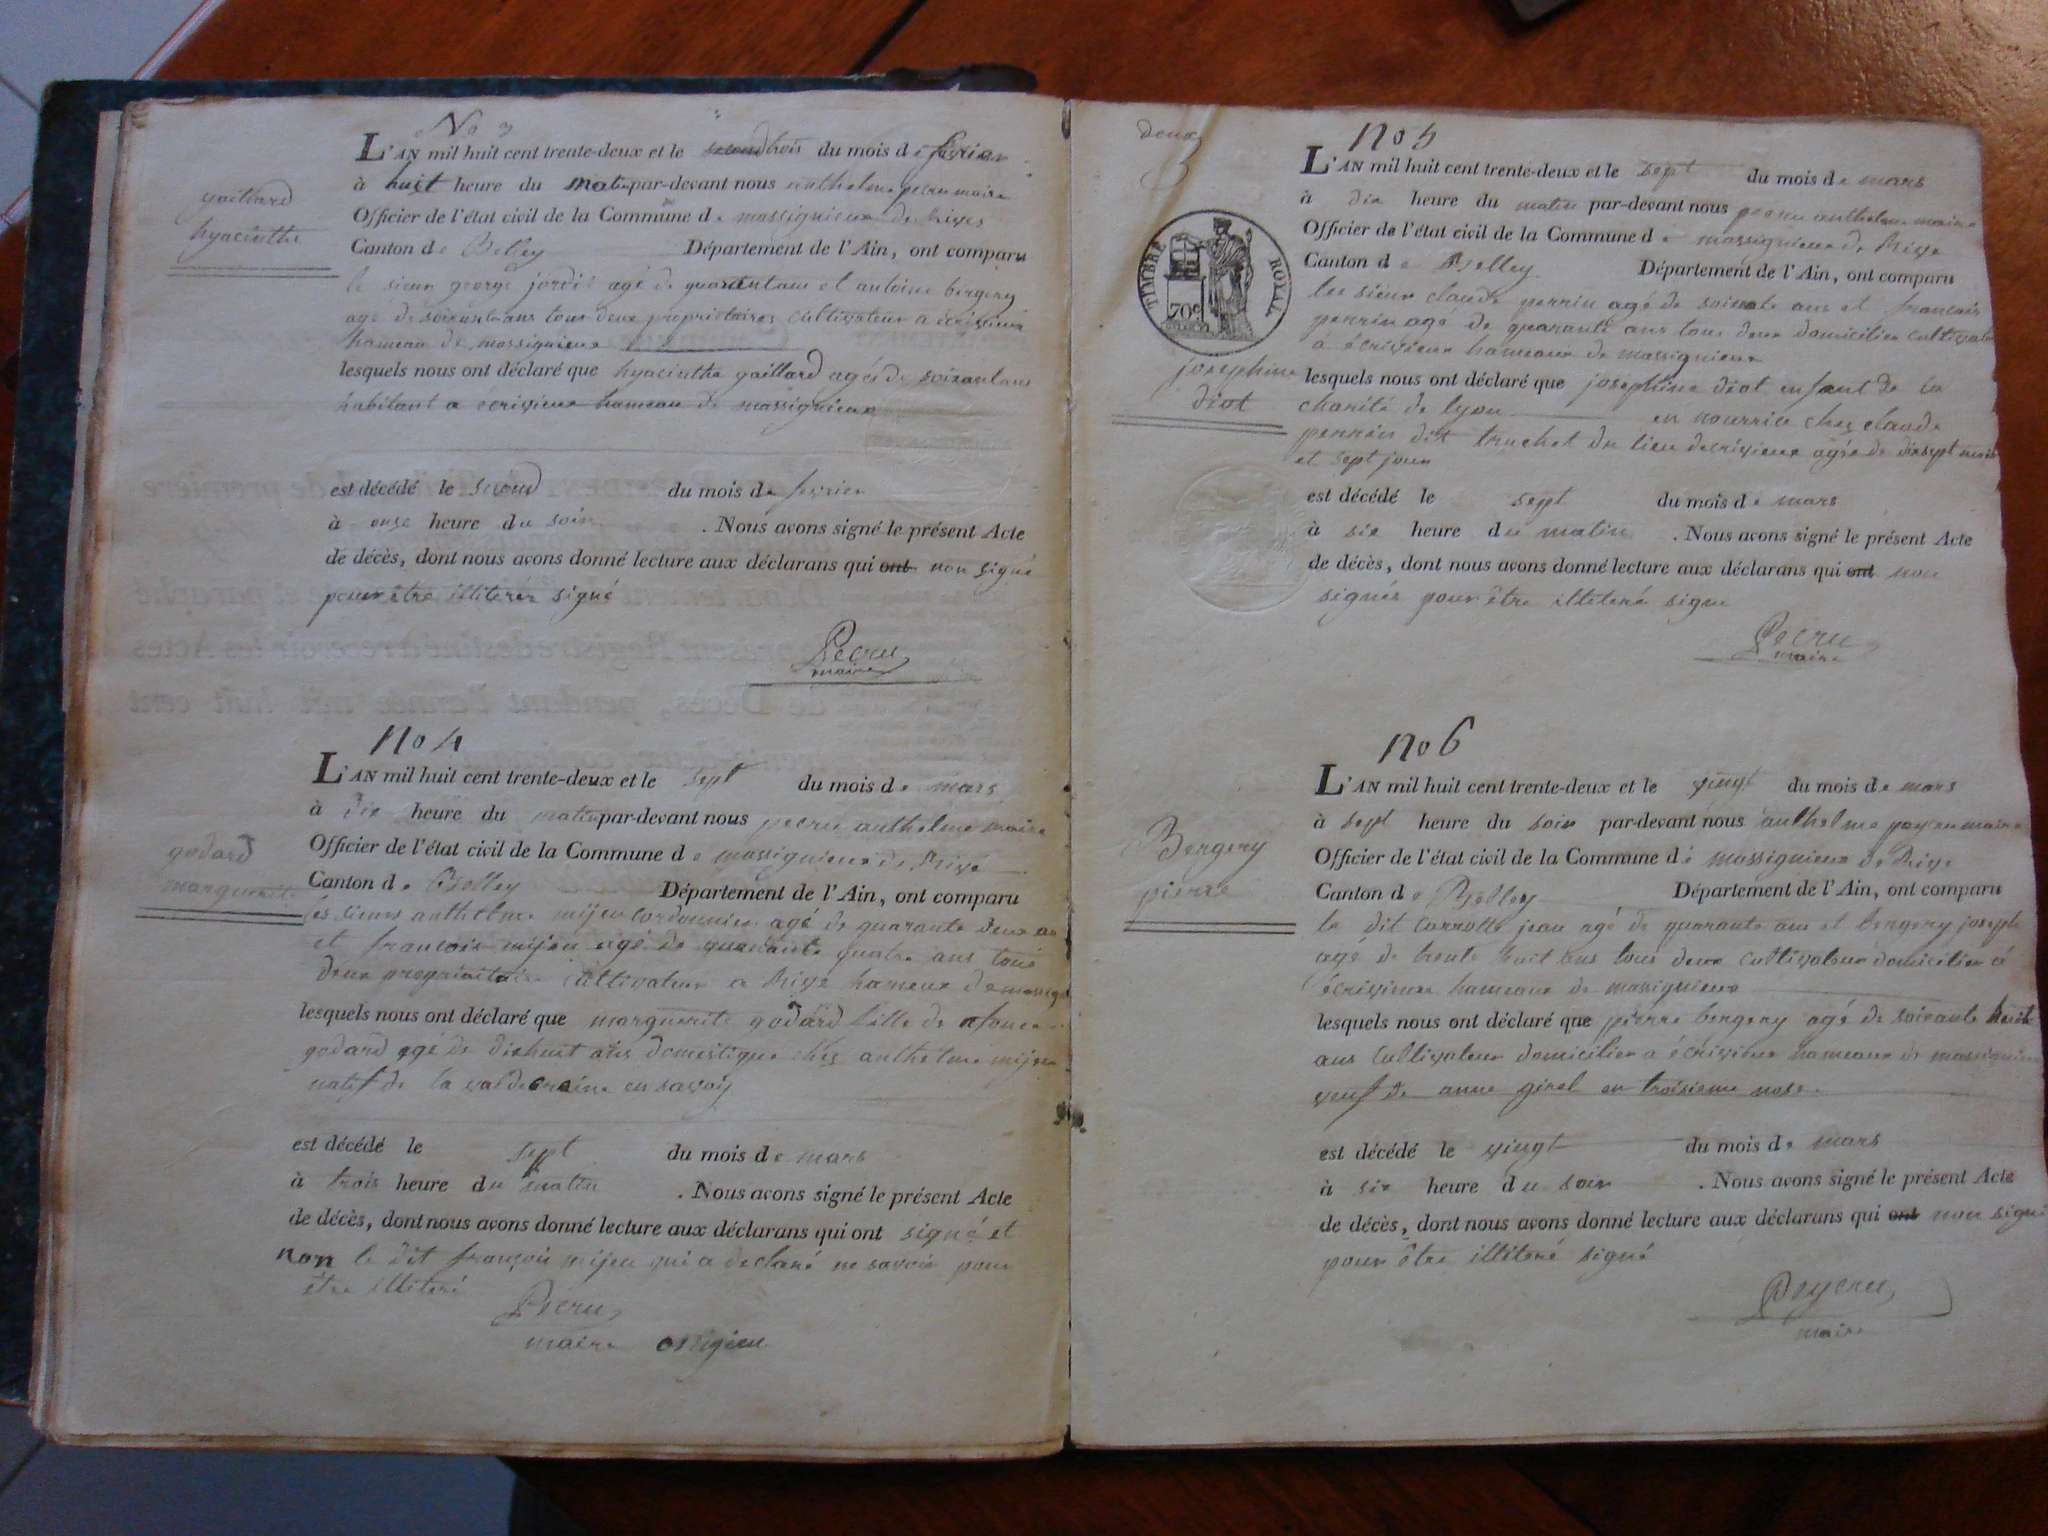 No 3
L'AN mil huit cent trente-deux et le second trois du mois de fevrier
à huit heure du matin par-devant nous anthelme pecru maire
Officier de l'état civil de la Commune de massignieux de Rives
Canton de Belley Département de l'Ain, ont comparu
le sieur george jordil agé de quarantans et antoine bergery
agé de soixantans tous deux propriétaires cultivateur a écrivieux
hameau de massignieux
lesquels nous ont déclaré que hyacinthe gaillard agés de soixantans
habitant a écrivieux hameau de massignieux
est décédé le second du mois de fevrier
à onse heure du soir. Nous avons signé le présent Acte
de décès, dont nous avons donné lecture aux déclarans qui ont non signé
pour être illiterés signé
Pecru
maire
gaillard
hyacinthe
No 4
L'AN mil huit cent trente-deux et le sept du mois de mars
à dix heure du matin par-devant nous pecru anthelme maire
Officier de l'état civil de la Commune de massignieux de Rive
Canton de Belley Département de l'Ain, ont comparu
les sieurs anthelme mijeu cordonnier agé de quarante deux an
et francois mijeu agé de quarante quatre ans tous
deux propriaitaire cultivateur a Rive hameux de massig
lesquels nous ont déclaré que marguerite godard fille de
godard age de dixhuit ans domestique chez anthelme mijeu
natif de la en savoy
est décédé le sept du mois de mars
à trois heure du matin. Nous avons signé le présent Acte
de décès, dont nous avons donné lecture aux déclarans qui ont signé et
non le dit françois mijeu qui a declaré ne savoir pour
être illiteré
Pecru
maire
godard
marguerite
deux
No 5
L'AN mil huit cent trente-deux et le sept du mois de mars
à dix heure du matin par-devant nous pecru anthelme maire
Officier de l'état civil de la Commune de massignieux de Rive
Canton de Belley Département de l'Ain, ont comparu
les sieur claude perrin agé de soixante ans et francois
perrin agé de quarante ans tous deux domicilier cultivateur
a écrivieux hameaux de massignieux
lesquels nous ont déclaré que josephine diot enfant de la
charité de lyon en nourrice chez claude
perrin dit truchet du lieu decrivieux agée de dixsept mois
et sept jour
est décédé le sept du mois de mars
à six heure du matin. Nous avons signé le présent Acte
de décès, dont nous avons donné lecture aux déclarans qui ont non
signés pour être illiteré signe
Pecru
maire
TIMBRE ROYAL
70c
josephine
diot
No 6
L'AN mil huit cent trente-deux et le vingt du mois de mars
à sept heure du soir par-devant nous anthelme peycru maire
Officier de l'état civil de la Commune de massignieux de Rive
Canton de Belley Département de l'Ain, ont comparu
le dit jean agé de quarante ans et bergery joseph
agé de trente huit ans tous deux cultivateur domicilier à
écrivieux hameaux de massignieux
lesquels nous ont déclaré que pierre bergery agé de soixante huit
ans cultivateur domicilier a écrivieux hameaux de massignieux
veuf de anne girel en troisieme nose
est décédé le vingt du mois de mars
à six heure du soir. Nous avons signé le présent Acte
de décès, dont nous avons donné lecture aux déclarans qui ont non signé
pour être illiteré signé
Peycru
maire
Bergery
pierre